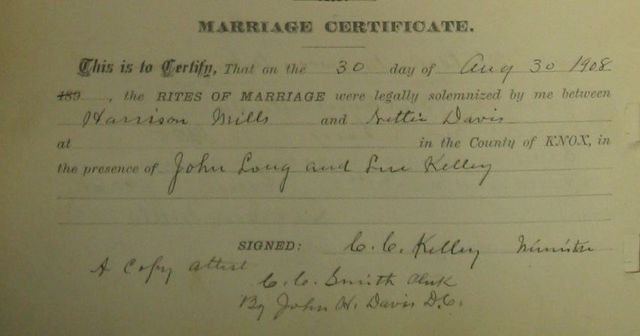 MARRIAGE CERTIFICATE.
This is to Certify, That on the 30 day of Aug 30 1908
189 , the RITES OF MARRIAGE were legally solemnized by me between
Harrison Mills and Nettie Davis
at in the County of KNOX, in
the presence of John Long and Sue Kelley
SIGNED: C. C. Kelley Minister
A Copy attest
C. C. Smith Clerk
By John H. Davis D.C.